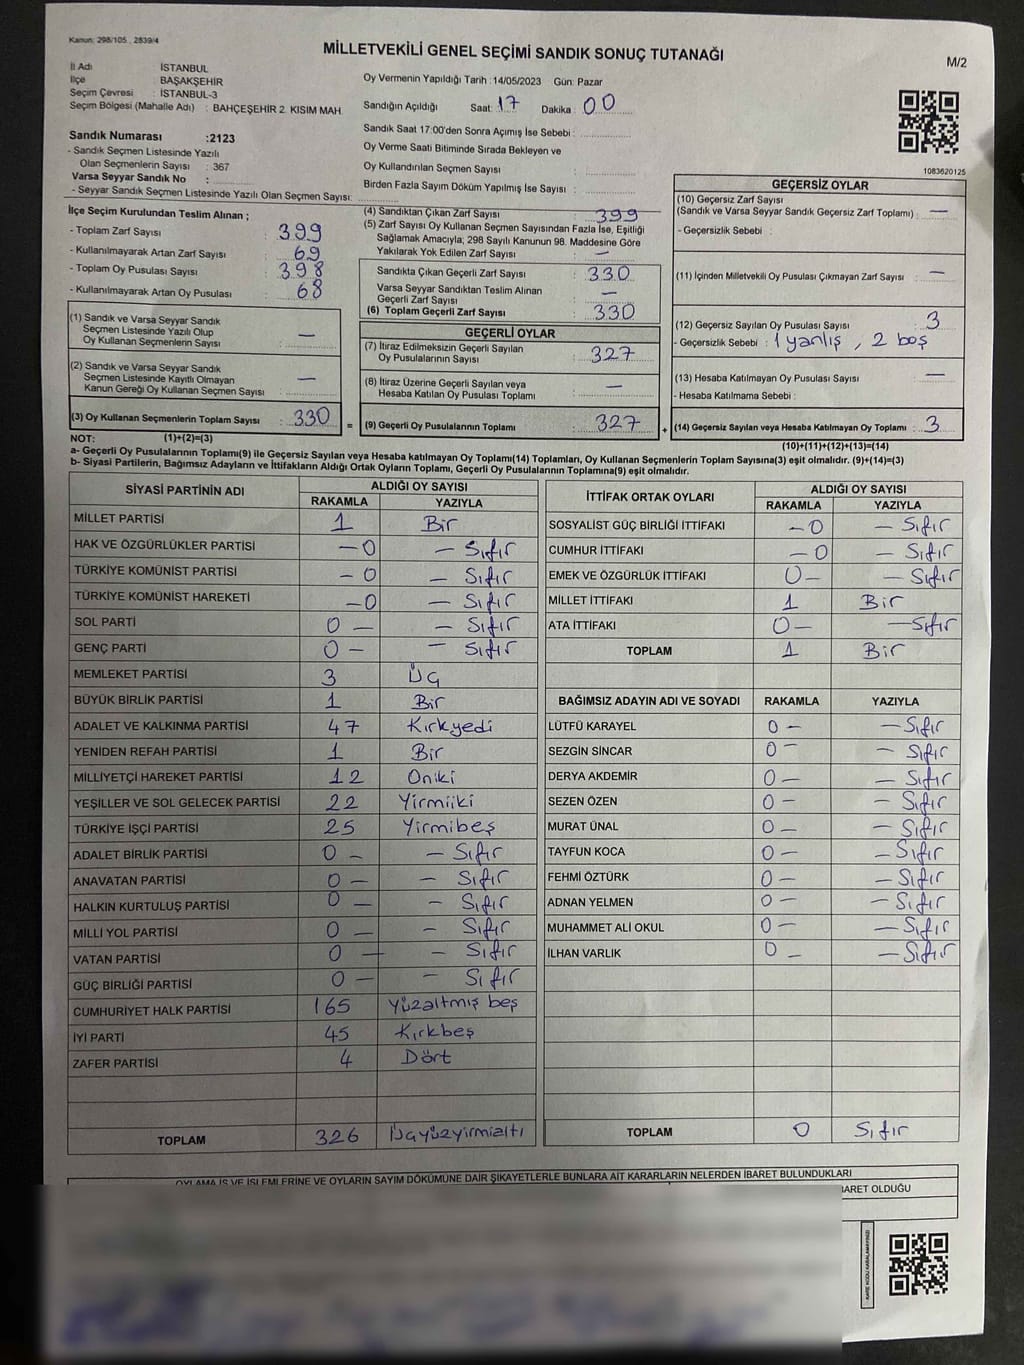 Kanun: 298/105 , 2839/4
MİLLETVEKİLİ GENEL SEÇİMİ SANDIK SONUÇ TUTANAĞI
M/2
İl Adı : İSTANBUL
İlçe : BAŞAKŞEHİR
Seçim Çevresi : İSTANBUL-3
Seçim Bölgesi (Mahalle Adı) : BAHÇEŞEHİR 2. KISIM MAH
Sandık Numarası :2123
- Sandık Seçmen Listesinde Yazılı
Olan Seçmenlerin Sayısı : 367
Varsa Seyyar Sandık No :
- Seyyar Sandık Seçmen Listesinde Yazılı Olan Seçmen Sayısı:
Oy Vermenin Yapıldığı Tarih :14/05/2023 Gün: Pazar
Sandığın Açıldığı Saat: 17 Dakika : 00
Sandık Saat 17:00'den Sonra Açımış İse Sebebi :
Oy Verme Saati Bitiminde Sırada Bekleyen ve
Oy Kullandırılan Seçmen Sayısı :
Birden Fazla Sayım Döküm Yapılmış İse Sayısı :
1083620125
İlçe Seçim Kurulundan Teslim Alınan ;
- Toplam Zarf Sayısı : 399
- Kullanılmayarak Artan Zarf Sayısı : 69
- Toplam Oy Pusulası Sayısı : 398
- Kullanılmayarak Artan Oy Pusulası : 68
(1) Sandık ve Varsa Seyyar Sandık
Seçmen Listesinde Yazılı Olup
Oy Kullanan Seçmenlerin Sayısı : —
(2) Sandık ve Varsa Seyyar Sandık
Seçmen Listesinde Kayıtlı Olmayan
Kanun Gereği Oy Kullanan Seçmen Sayısı : —
(3) Oy Kullanan Seçmenlerin Toplam Sayısı : 330 =
(4) Sandıktan Çıkan Zarf Sayısı : 399
(5) Zarf Sayısı Oy Kullanan Seçmen Sayısından Fazla İse, Eşitliği
Sağlamak Amacıyla; 298 Sayılı Kanunun 98. Maddesine Göre
Yakılarak Yok Edilen Zarf Sayısı : —
Sandıkta Çıkan Geçerli Zarf Sayısı : 330
Varsa Seyyar Sandıktan Teslim Alınan
Geçerli Zarf Sayısı : —
(6) Toplam Geçerli Zarf Sayısı : 330
GEÇERLİ OYLAR
(7) İtiraz Edilmeksizin Geçerli Sayılan
Oy Pusulalarının Sayısı : 327
(8) İtiraz Üzerine Geçerli Sayılan veya
Hesaba Katılan Oy Pusulası Toplamı : —
(9) Geçerli Oy Pusulalarının Toplamı : 327 +
GEÇERSİZ OYLAR
(10) Geçersiz Zarf Sayısı
(Sandık ve Varsa Seyyar Sandık Geçersiz Zarf Toplamı) : —
- Geçersizlik Sebebi :
(11) İçinden Milletvekili Oy Pusulası Çıkmayan Zarf Sayısı : —
(12) Geçersiz Sayılan Oy Pusulası Sayısı : 3
- Geçersizlik Sebebi : 1 yanlış , 2 boş
(13) Hesaba Katılmayan Oy Pusulası Sayısı : —
- Hesaba Katılmama Sebebi :
(14) Geçersiz Sayılan veya Hesaba Katılmayan Oy Toplamı : 3
NOT: (1)+(2)=(3)
(10)+(11)+(12)+(13)=(14)
a- Geçerli Oy Pusulalarının Toplamı(9) ile Geçersiz Sayılan veya Hesaba Katılmayan Oy Toplamı(14) Toplamları, Oy Kullanan Seçmenlerin Toplam Sayısına(3) eşit olmalıdır. (9)+(14)=(3)
b- Siyasi Partilerin, Bağımsız Adayların ve İttifakların Aldığı Ortak Oyların Toplamı, Geçerli Oy Pusulalarının Toplamına(9) eşit olmalıdır.
SİYASİ PARTİNİN ADI ALDIĞI OY SAYISI
RAKAMLA YAZIYLA
MİLLET PARTİSİ 1 Bir
HAK VE ÖZGÜRLÜKLER PARTİSİ —0 — Sıfır
TÜRKİYE KOMÜNİST PARTİSİ —0 — Sıfır
TÜRKİYE KOMÜNİST HAREKETİ —0 — Sıfır
SOL PARTİ 0 — — Sıfır
GENÇ PARTİ 0 — — Sıfır
MEMLEKET PARTİSİ 3 Üç
BÜYÜK BİRLİK PARTİSİ 1 Bir
ADALET VE KALKINMA PARTİSİ 47 Kırkyedi
YENİDEN REFAH PARTİSİ 1 Bir
MİLLİYETÇİ HAREKET PARTİSİ 12 Oniki
YEŞİLLER VE SOL GELECEK PARTİSİ 22 Yirmiiki
TÜRKİYE İŞÇİ PARTİSİ 25 Yirmibeş
ADALET BİRLİK PARTİSİ 0 — — Sıfır
ANAVATAN PARTİSİ 0 — — Sıfır
HALKIN KURTULUŞ PARTİSİ 0 — — Sıfır
MİLLİ YOL PARTİSİ 0 — — Sıfır
VATAN PARTİSİ 0 — — Sıfır
GÜÇ BİRLİĞİ PARTİSİ 0 — — Sıfır
CUMHURİYET HALK PARTİSİ 165 Yüzaltmış beş
İYİ PARTİ 45 Kırkbeş
ZAFER PARTİSİ 4 Dört
TOPLAM 326 Üçyüzyirmialtı
İTTİFAK ORTAK OYLARI ALDIĞI OY SAYISI
RAKAMLA YAZIYLA
SOSYALİST GÜÇ BİRLİĞİ İTTİFAKI —0 — Sıfır
CUMHUR İTTİFAKI —0 — Sıfır
EMEK VE ÖZGÜRLÜK İTTİFAKI 0— — Sıfır
MİLLET İTTİFAKI 1 Bir
ATA İTTİFAKI 0— — Sıfır
TOPLAM 1 Bir
BAĞIMSIZ ADAYIN ADI VE SOYADI RAKAMLA YAZIYLA
LÜTFÜ KARAYEL 0 — — Sıfır
SEZGİN SİNCAR 0 — — Sıfır
DERYA AKDEMİR 0 — — Sıfır
SEZEN ÖZEN 0 — — Sıfır
MURAT ÜNAL 0 — — Sıfır
TAYFUN KOCA 0 — — Sıfır
FEHMİ ÖZTÜRK 0 — — Sıfır
ADNAN YELMEN 0 — — Sıfır
MUHAMMET ALİ OKUL 0 — — Sıfır
İLHAN VARLIK 0 — — Sıfır
TOPLAM 0 Sıfır
OYLAMA İŞ VE İŞLEMLERİNE VE OYLARIN SAYIM DÖKÜMÜNE DAİR ŞİKAYETLERLE BUNLARA AİT KARARLARIN NELERDEN İBARET BULUNDUKLARI
İBARET OLDUĞU
KARE KODU KARALAMAYINIZ!